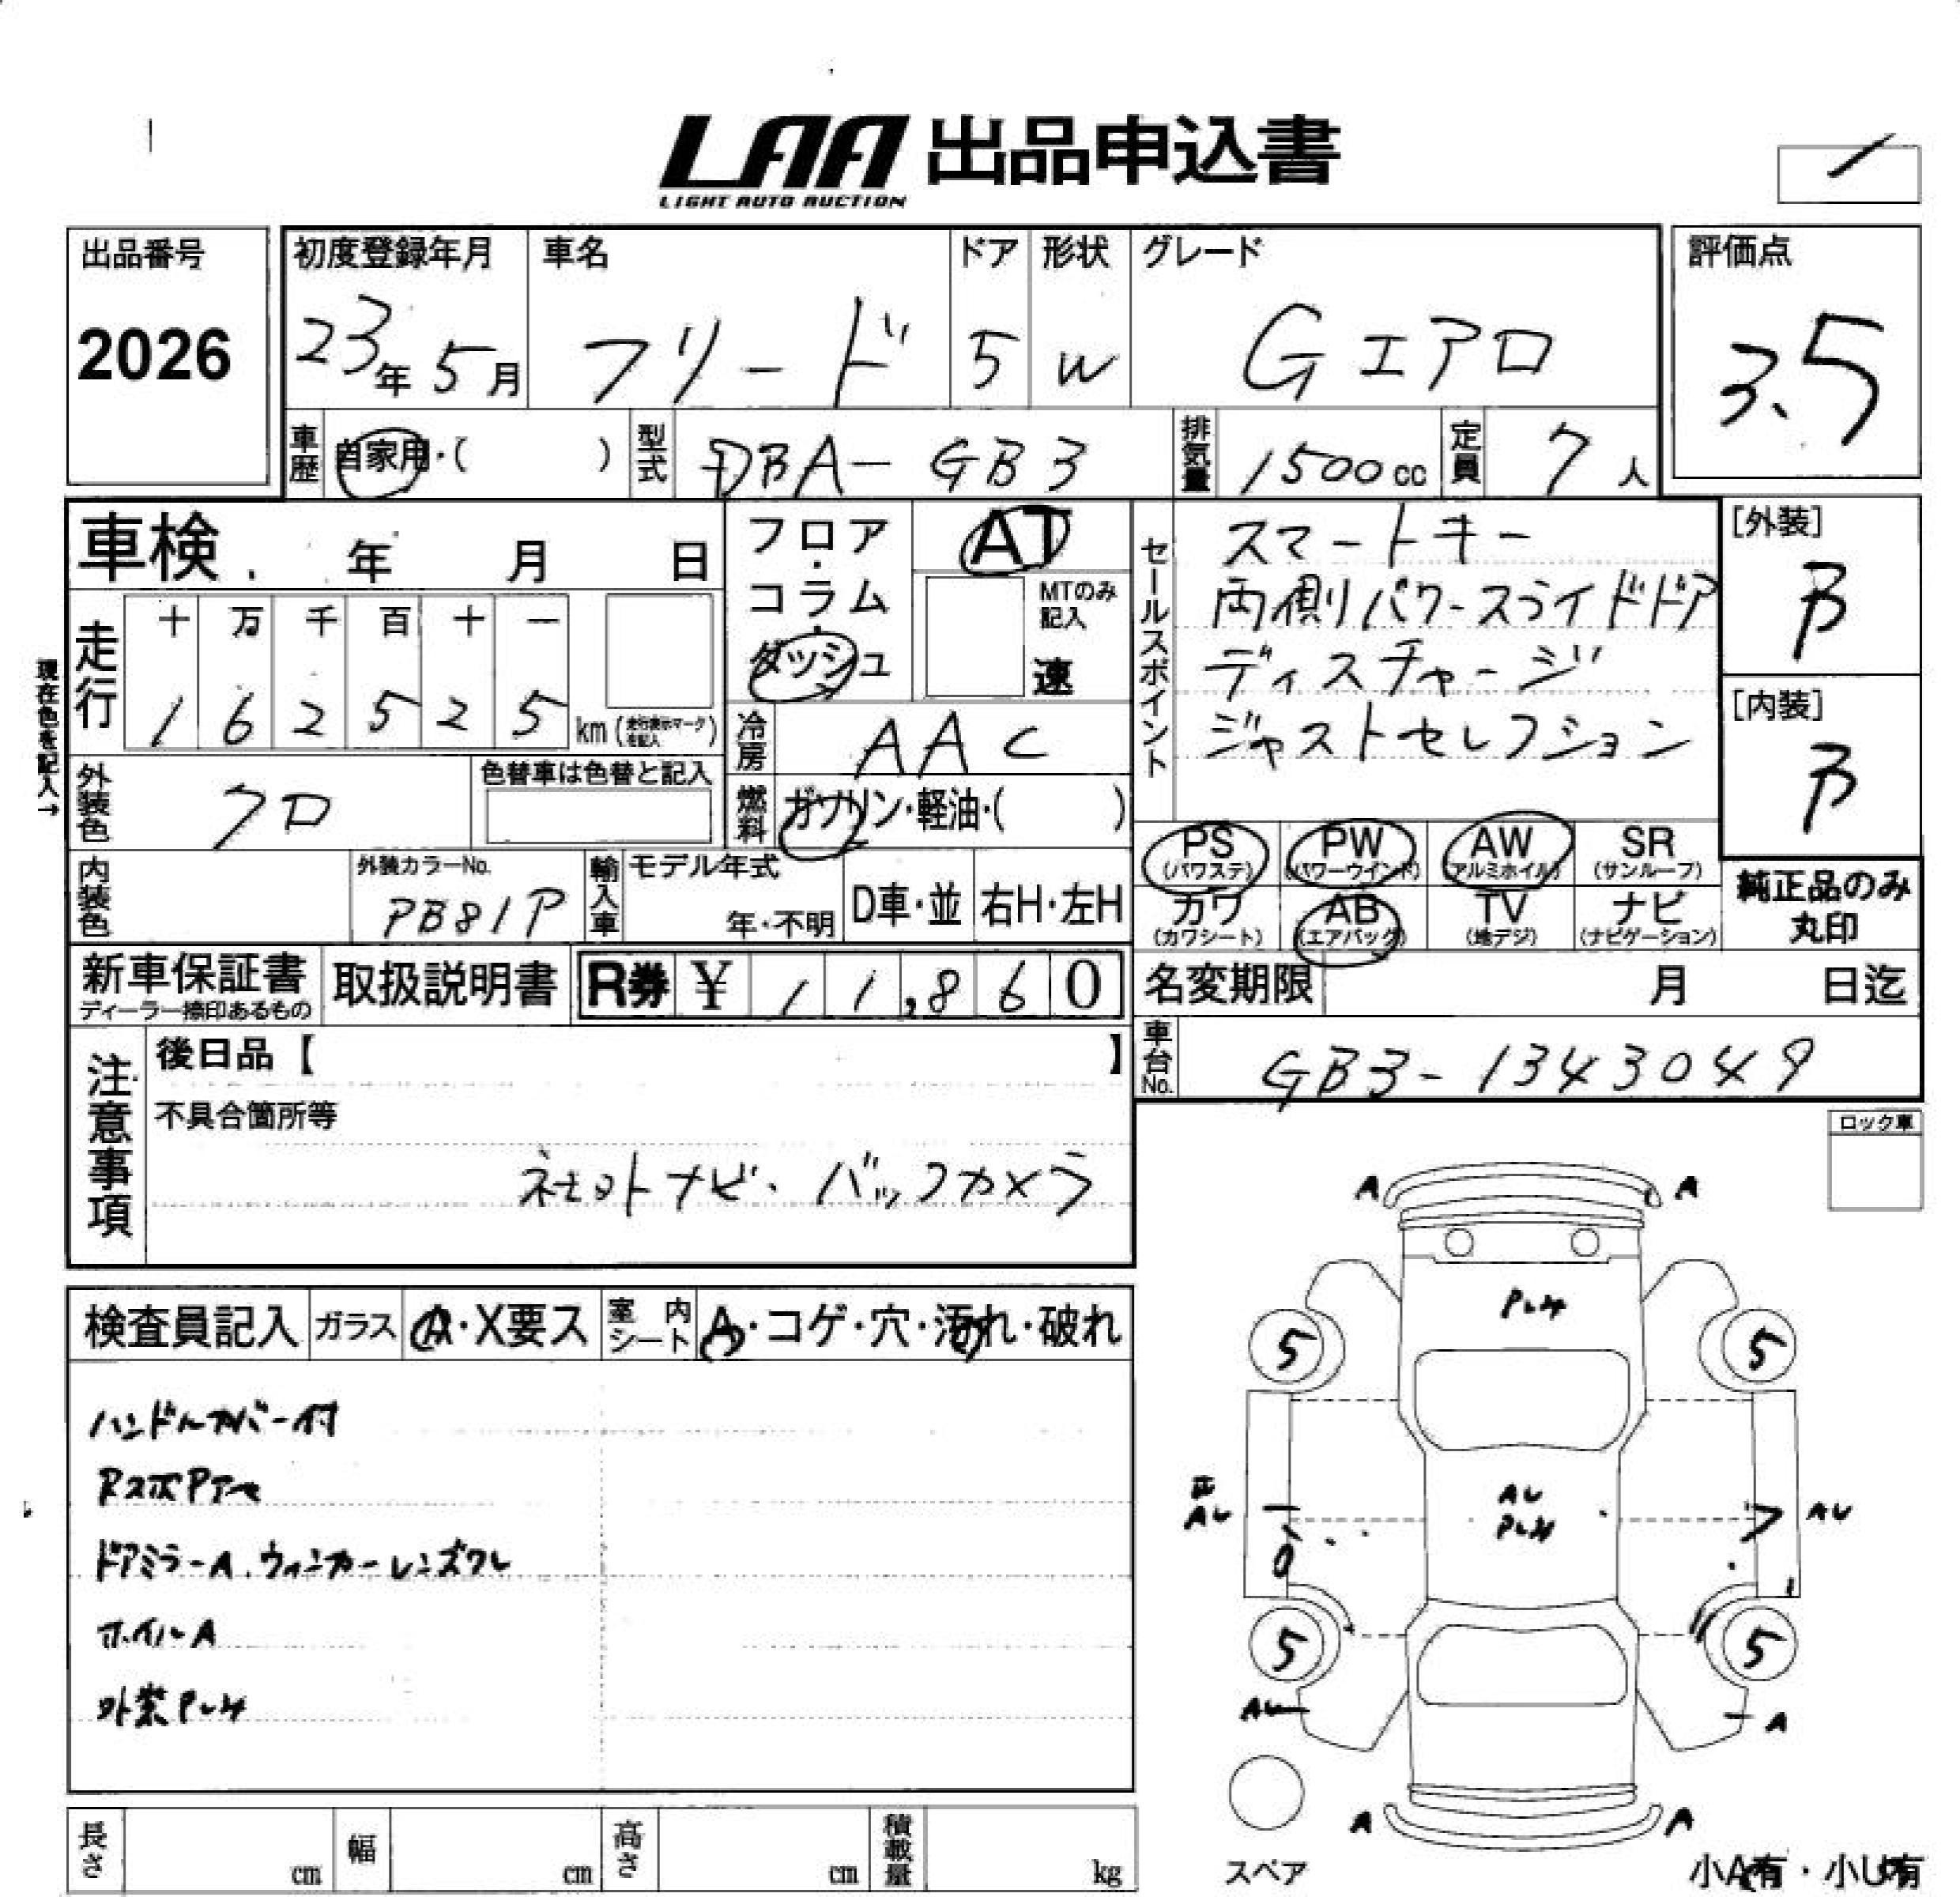 LAA 出品申込書
LIGHT AUTO AUCTION
出品番号
2026
初度登録年月
23年 5月
車名
フリード
ドア
5
形状
W
グレード
Gエアロ
評価点
3.5
車歴
自家用・( )
型式
DBA-GB3
排気量
1500cc
定員
7人
車検 年 月 日
フロア・コラム・ダッシュ
AT
MTのみ記入
速
セールスポイント
スマートキー
両側パワースライドドア
ディスチャージ
ジャストセレクション
[外装]
B
[内装]
B
現在色を記入→
走行
十 万 千 百 十 一
1 6 2 5 2 5 km (走行表示マークを記入)
冷房
AAC
外装色
クロ
色替車は色替と記入
燃料
ガソリン・軽油・( )
PS (パワステ)
PW (パワーウインド)
AW (アルミホイル)
SR (サンルーフ)
カワ (カワシート)
AB (エアバッグ)
TV (地デジ)
ナビ (ナビゲーション)
純正品のみ丸印
内装色
外装カラーNo.
PB81P
輸入車
モデル年式
年・不明
D車・並
右H・左H
新車保証書
ディーラー捺印あるもの
取扱説明書
R券 ¥ 11,860
名変期限 月 日迄
車台No.
GB3-1343049
注意事項
後日品【 】
不具合箇所等
社外ナビ・バックカメラ
ロック車
検査員記入
ガラス
A・X要ス
室内シート
A・コゲ・穴・汚れ・破れ
ハンドルカバー付
ドアミラーA、ウィンカーレンズワレ
ホイルA
A A
5 5
AU
AU AU
5 5
AU A
A A
スペア
小A有・小U有
長さ cm
幅 cm
高さ cm
積載量 kg